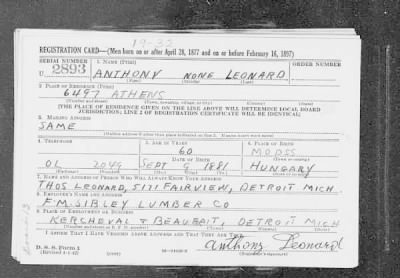 19-32
REGISTRATION CARD—(Men born on or after April 28, 1877 and on or before February 16, 1897)
SERIAL NUMBER 1. NAME (Print) ORDER NUMBER
U 2893 ANTHONY NONE LEONARD
(First) (Middle) (Last)
2. PLACE OF RESIDENCE (Print)
6497 ATHENS
(Number and street) (Town, township, village, or city) (County) (State)
[THE PLACE OF RESIDENCE GIVEN ON THE LINE ABOVE WILL DETERMINE LOCAL BOARD
JURISDICTION; LINE 2 OF REGISTRATION CERTIFICATE WILL BE IDENTICAL]
3. MAILING ADDRESS
SAME
[Mailing address if other than place indicated on line 2. If same insert word same]
4. TELEPHONE 5. AGE IN YEARS 6. PLACE OF BIRTH
60
DATE OF BIRTH
OL 2049 SEPT 9 1881 HUNGARY
7. NAME AND ADDRESS OF PERSON WHO WILL ALWAYS KNOW YOUR ADDRESS
THOS LEONARD, 5171 FAIRVIEW, DETROIT MICH
8. EMPLOYER'S NAME AND ADDRESS
F.M. SIBLEY LUMBER CO
9. PLACE OF EMPLOYMENT OR BUSINESS
KERCHEVAL & BEAUFAIT, DETROIT MICH
I AFFIRM THAT I HAVE VERIFIED ABOVE ANSWERS AND THAT THEY ARE TRUE.
D. S. S. Form 1
(Revised 4-1-42) Anthony Leonard